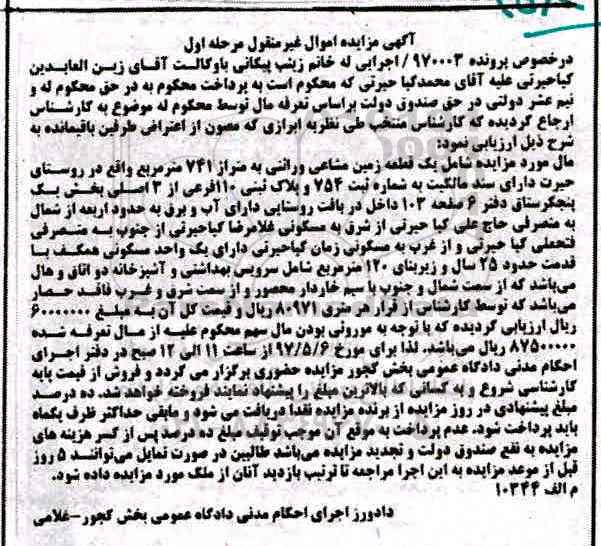 آگهی مزایده اموال غیرمنقول مرحله اول
درخصوص پرونده ۹۷۰۰۰۳ / اجرایی له خانم زینب پیگانی باوکالت آقای زین العابدین
کیاحیرتی علیه آقای محمدکیا حیرتی که محکوم است به پرداخت محکوم به در حق محکوم له و
نیم عشر دولتی در حق صندوق دولت براساس تعرفه مال توسط محکوم له موضوع به کارشناس
ارجاع گردیده که کارشناس منتخب طی نظریه ابرازی که مصون از اعتراض طرفین باقیمانده به
شرح ذیل ارزیابی نمود:
مال مورد مزایده شامل یک قطعه زمین مشاعی وراثتی به متراژ ۷۴۱ مترمربع واقع در روستای
حیرت دارای سند مالکیت به شماره ثبت ۷۵۴ و پلاک ثبتی ۱۱۰فرعی از ۳ اصلی بخش یک
پنجکرستاق دفتر ۶ صفحه ۱۰۳ داخل در بافت روستایی دارای آب و برق به حدود اربعه از شمال
به متصرفی حاج علی کیا حیرتی از شرق به مسکونی غلامرضا کیاحیرتی از جنوب به متصرفی
فتحعلی کیا حیرتی و از غرب به مسکونی زمان کیاحیرتی دارای یک واحد مسکونی همکف با
قدمت حدود ۲۵ سال و زیربنای ۱۲۰ مترمربع شامل سرویس بهداشتی و آشپزخانه دو اتاق و هال
می‌باشد که از سمت شمال و جنوب با سیم خاردار محصور و از سمت شرق و غرب فاقد حصار
می‌باشد که توسط کارشناس از قرار هر متری ۸۰۹۷۱ ریال و قیمت کل آن به مبلغ ۶۰۰۰۰۰۰۰
ریال ارزیابی گردیده که با توجه به موروثی بودن مال سهم محکوم علیه از مال تعرفه شده
۸۷۵۰۰۰۰۰ ریال می‌باشد. لذا برای مورخ ۹۷/۵/۶ از ساعت ۱۱ الی ۱۲ صبح در دفتر اجرای
احکام مدنی دادگاه عمومی بخش کجور مزایده حضوری برگزار می گردد و فروش از قیمت پایه
کارشناسی شروع و به کسانی که بالاترین مبلغ را پیشنهاد نمایند فروخته خواهد شد. ده درصد
مبلغ پیشنهادی در روز مزایده از برنده مزایده نقدا دریافت می شود و مابقی حداکثر ظرف یکماه
باید پرداخت شود. عدم پرداخت به موقع آن موجب توقیف مبلغ ده درصد پس از کسر هزینه های
مزایده به نفع صندوق دولت و تجدید مزایده می‌باشد طالبین در صورت تمایل می‌توانند ۵ روز
قبل از موعد مزایده به این اجرا مراجعه تا ترتیب بازدید آنان از ملک مورد مزایده داده شود.
م الف ۱۰۳۴۴
دادورز اجرای احکام مدنی دادگاه عمومی بخش کجور-غلامی